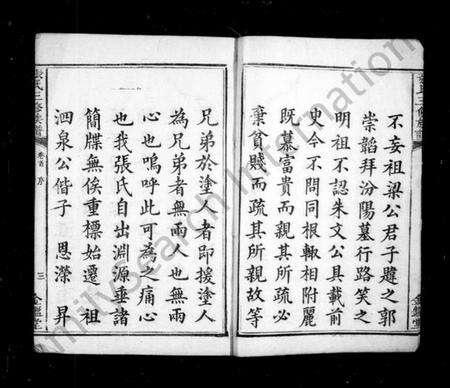 不妄祖梁公君子韙之郭
崇韜拜汾陽墓行路笑之
明祖不認朱文公具載前
史今不問同根輙相附麗
既慕富貴而親其所疏必
棄貧賤而疏其所親故等
兄弟於塗人者即援塗人
為兄弟者無兩人也無兩
心也嗚呼此可為之痛心
也我張氏自出淵源垂諸
簡牒無俟重標始遷祖
泗泉公偕子恩濚昇
卷首 序
三
FamilySearch International